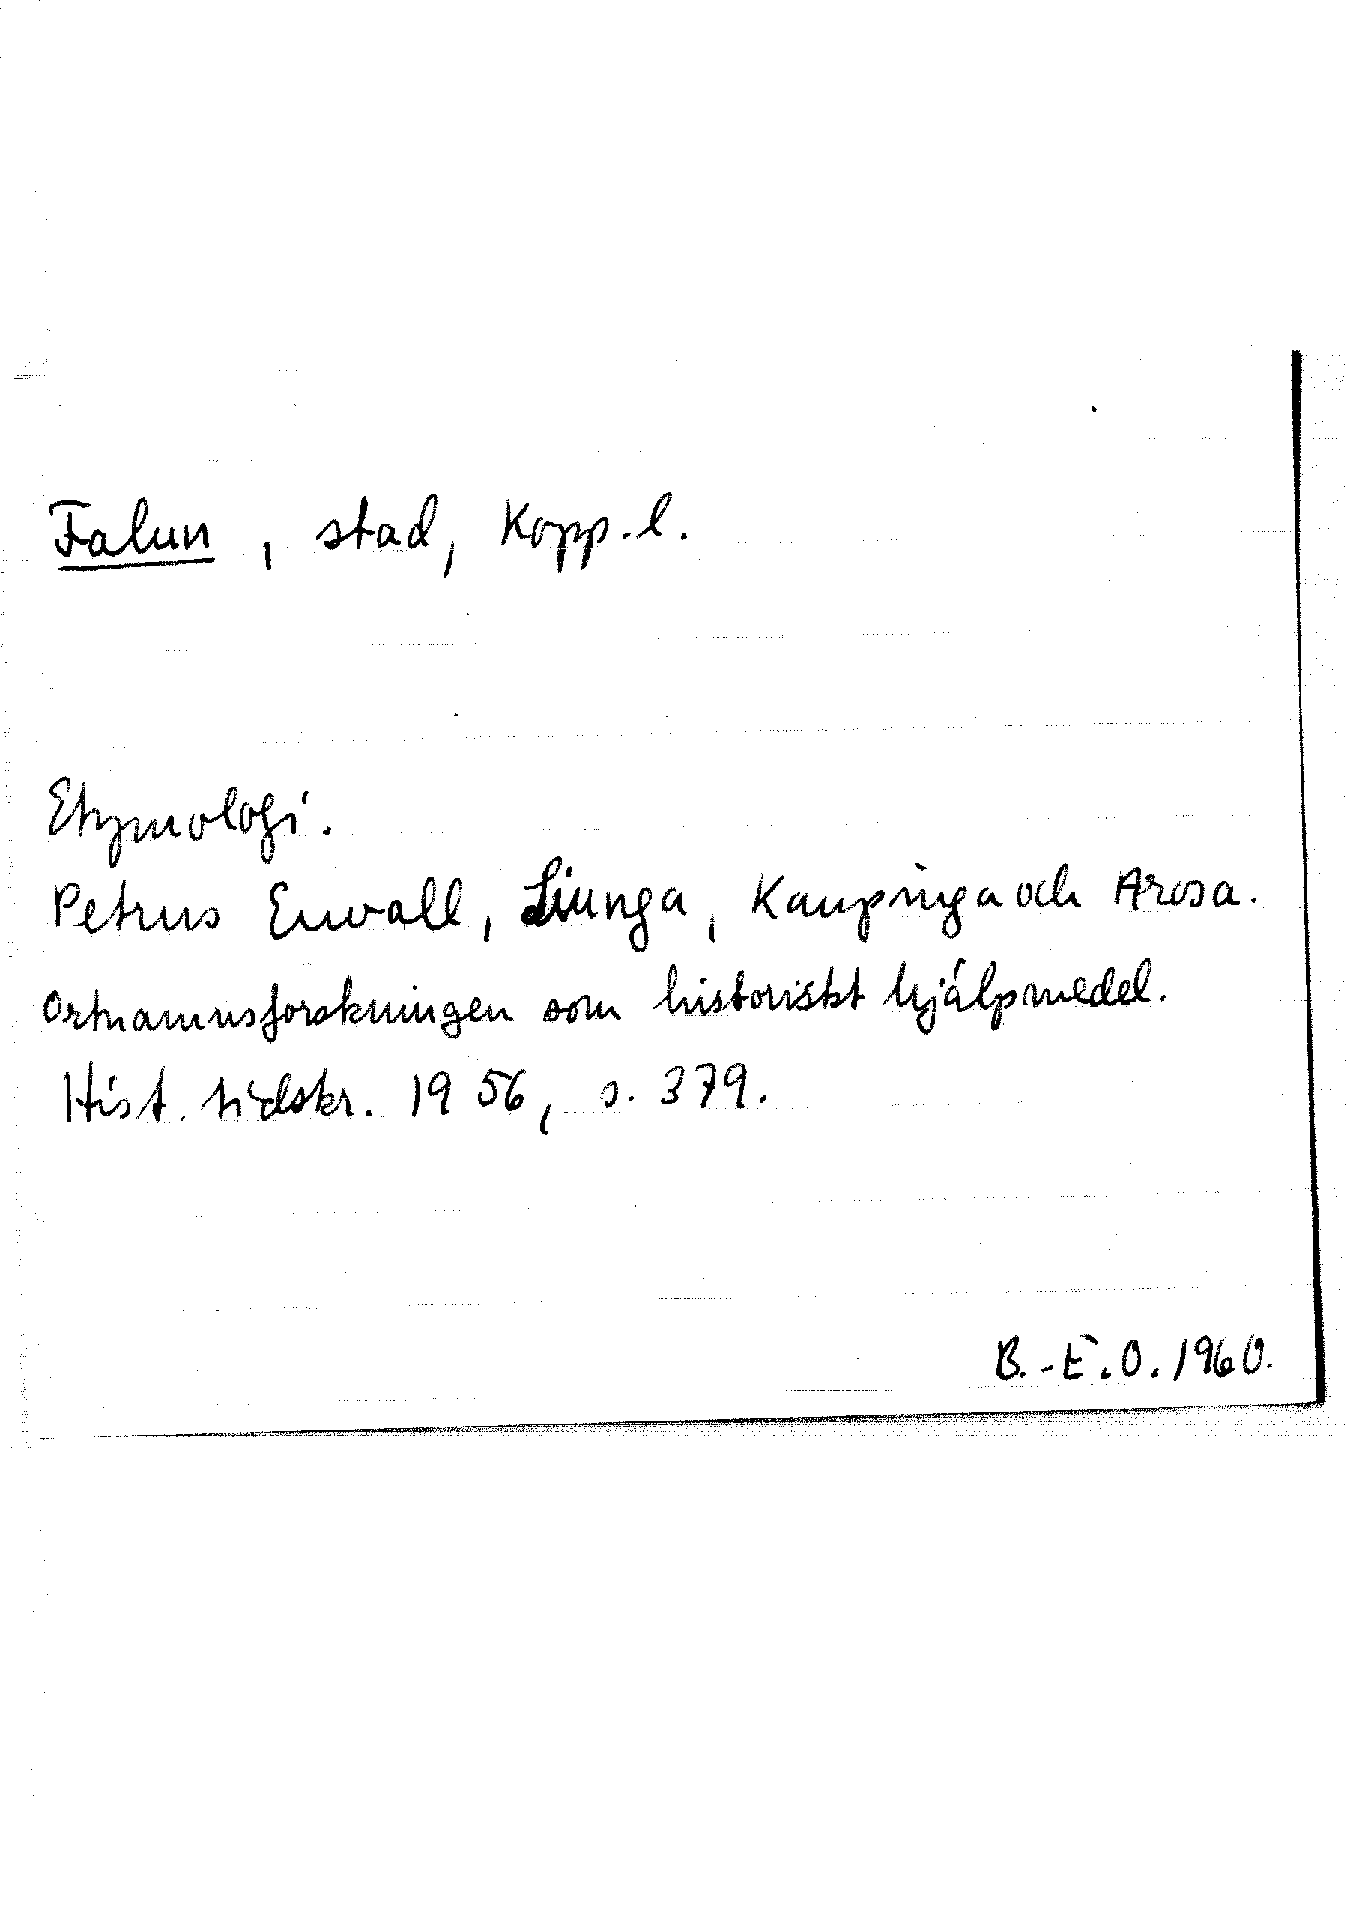 Falun, stad, Kopp. l.
Etymologi.
Petrus Envall, Liunga, Kaupinga och Arosa.
Ortnamnsforskningen som historiskt hjälpmedel.
Hist. tidskr. 1956, s. 379.
B.-E.O. 1960.